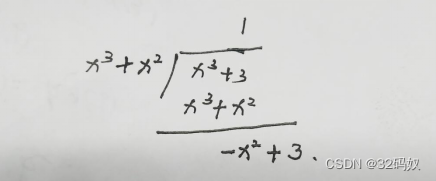 1
x³+x² ⟌ x³+3
x³+x²
-x²+3.
CSDN @32码奴